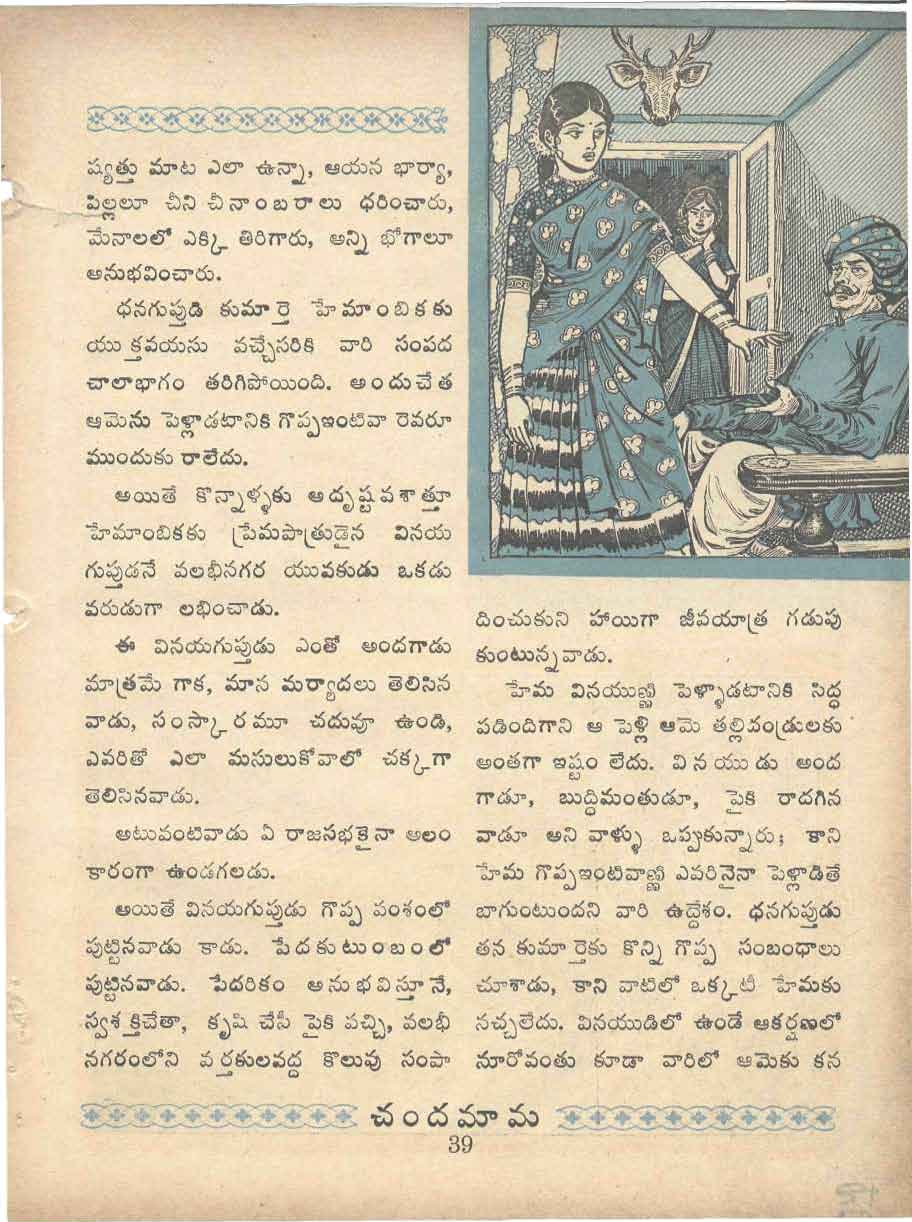 ష్యత్తు మాట ఎలా ఉన్నా, ఆయన భార్యా,
పిల్లలూ చీని చీనాంబరాలు ధరించారు,
మేనాలలో ఎక్కి తిరిగారు, అన్ని భోగాలూ
అనుభవించారు.
ధనగుప్తుడి కుమార్తె హేమాంబికకు
యుక్తవయసు వచ్చేసరికి వారి సంపద
చాలాభాగం తరిగిపోయింది. అందుచేత
ఆమెను పెళ్లాడటానికి గొప్పఇంటివా రెవరూ
ముందుకు రాలేదు.
అయితే కొన్నాళ్ళకు అదృష్టవశాత్తూ
హేమాంబికకు ప్రేమపాత్రుడైన వినయ
గుప్తుడనే వలభీనగర యువకుడు ఒకడు
వరుడుగా లభించాడు.
ఈ వినయగుప్తుడు ఎంతో అందగాడు
మాత్రమే గాక, మాన మర్యాదలు తెలిసిన
వాడు, సంస్కారమూ చదువూ ఉండి,
ఎవరితో ఎలా మసులుకోవాలో చక్కగా
తెలిసినవాడు.
అటువంటివాడు ఏ రాజసభకైనా అలం
కారంగా ఉండగలడు.
అయితే వినయగుప్తుడు గొప్ప వంశంలో
పుట్టినవాడు కాడు. పేదకుటుంబంలో
పుట్టినవాడు. పేదరికం అనుభవిస్తూనే,
స్వశక్తిచేతా, కృషి చేసీ పైకి వచ్చి, వలభీ
నగరంలోని వర్తకులవద్ద కొలువు సంపా
దించుకుని హాయిగా జీవయాత్ర గడుపు
కుంటున్నవాడు.
హేమ వినయుణ్ణి పెళ్ళాడటానికి సిద్ధ
పడిందిగాని ఆ పెళ్లి ఆమె తల్లివండ్రులకు
అంతగా ఇష్టం లేదు. వినయుడు అంద
గాడూ, బుద్ధిమంతుడూ, పైకి రాదగిన
వాడూ అని వాళ్ళు ఒప్పుకున్నారు; కాని
హేమ గొప్పఇంటివాణ్ణి ఎవరినైనా పెళ్లాడితే
బాగుంటుందని వారి ఉద్దేశం. ధనగుప్తుడు
తన కుమార్తెకు కొన్ని గొప్ప సంబంధాలు
చూశాడు, కాని వాటిలో ఒక్కటీ హేమకు
నచ్చలేదు. వినయుడిలో ఉండే ఆకర్షణలో
నూరోవంతు కూడా వారిలో ఆమెకు కన
చందమామ
39